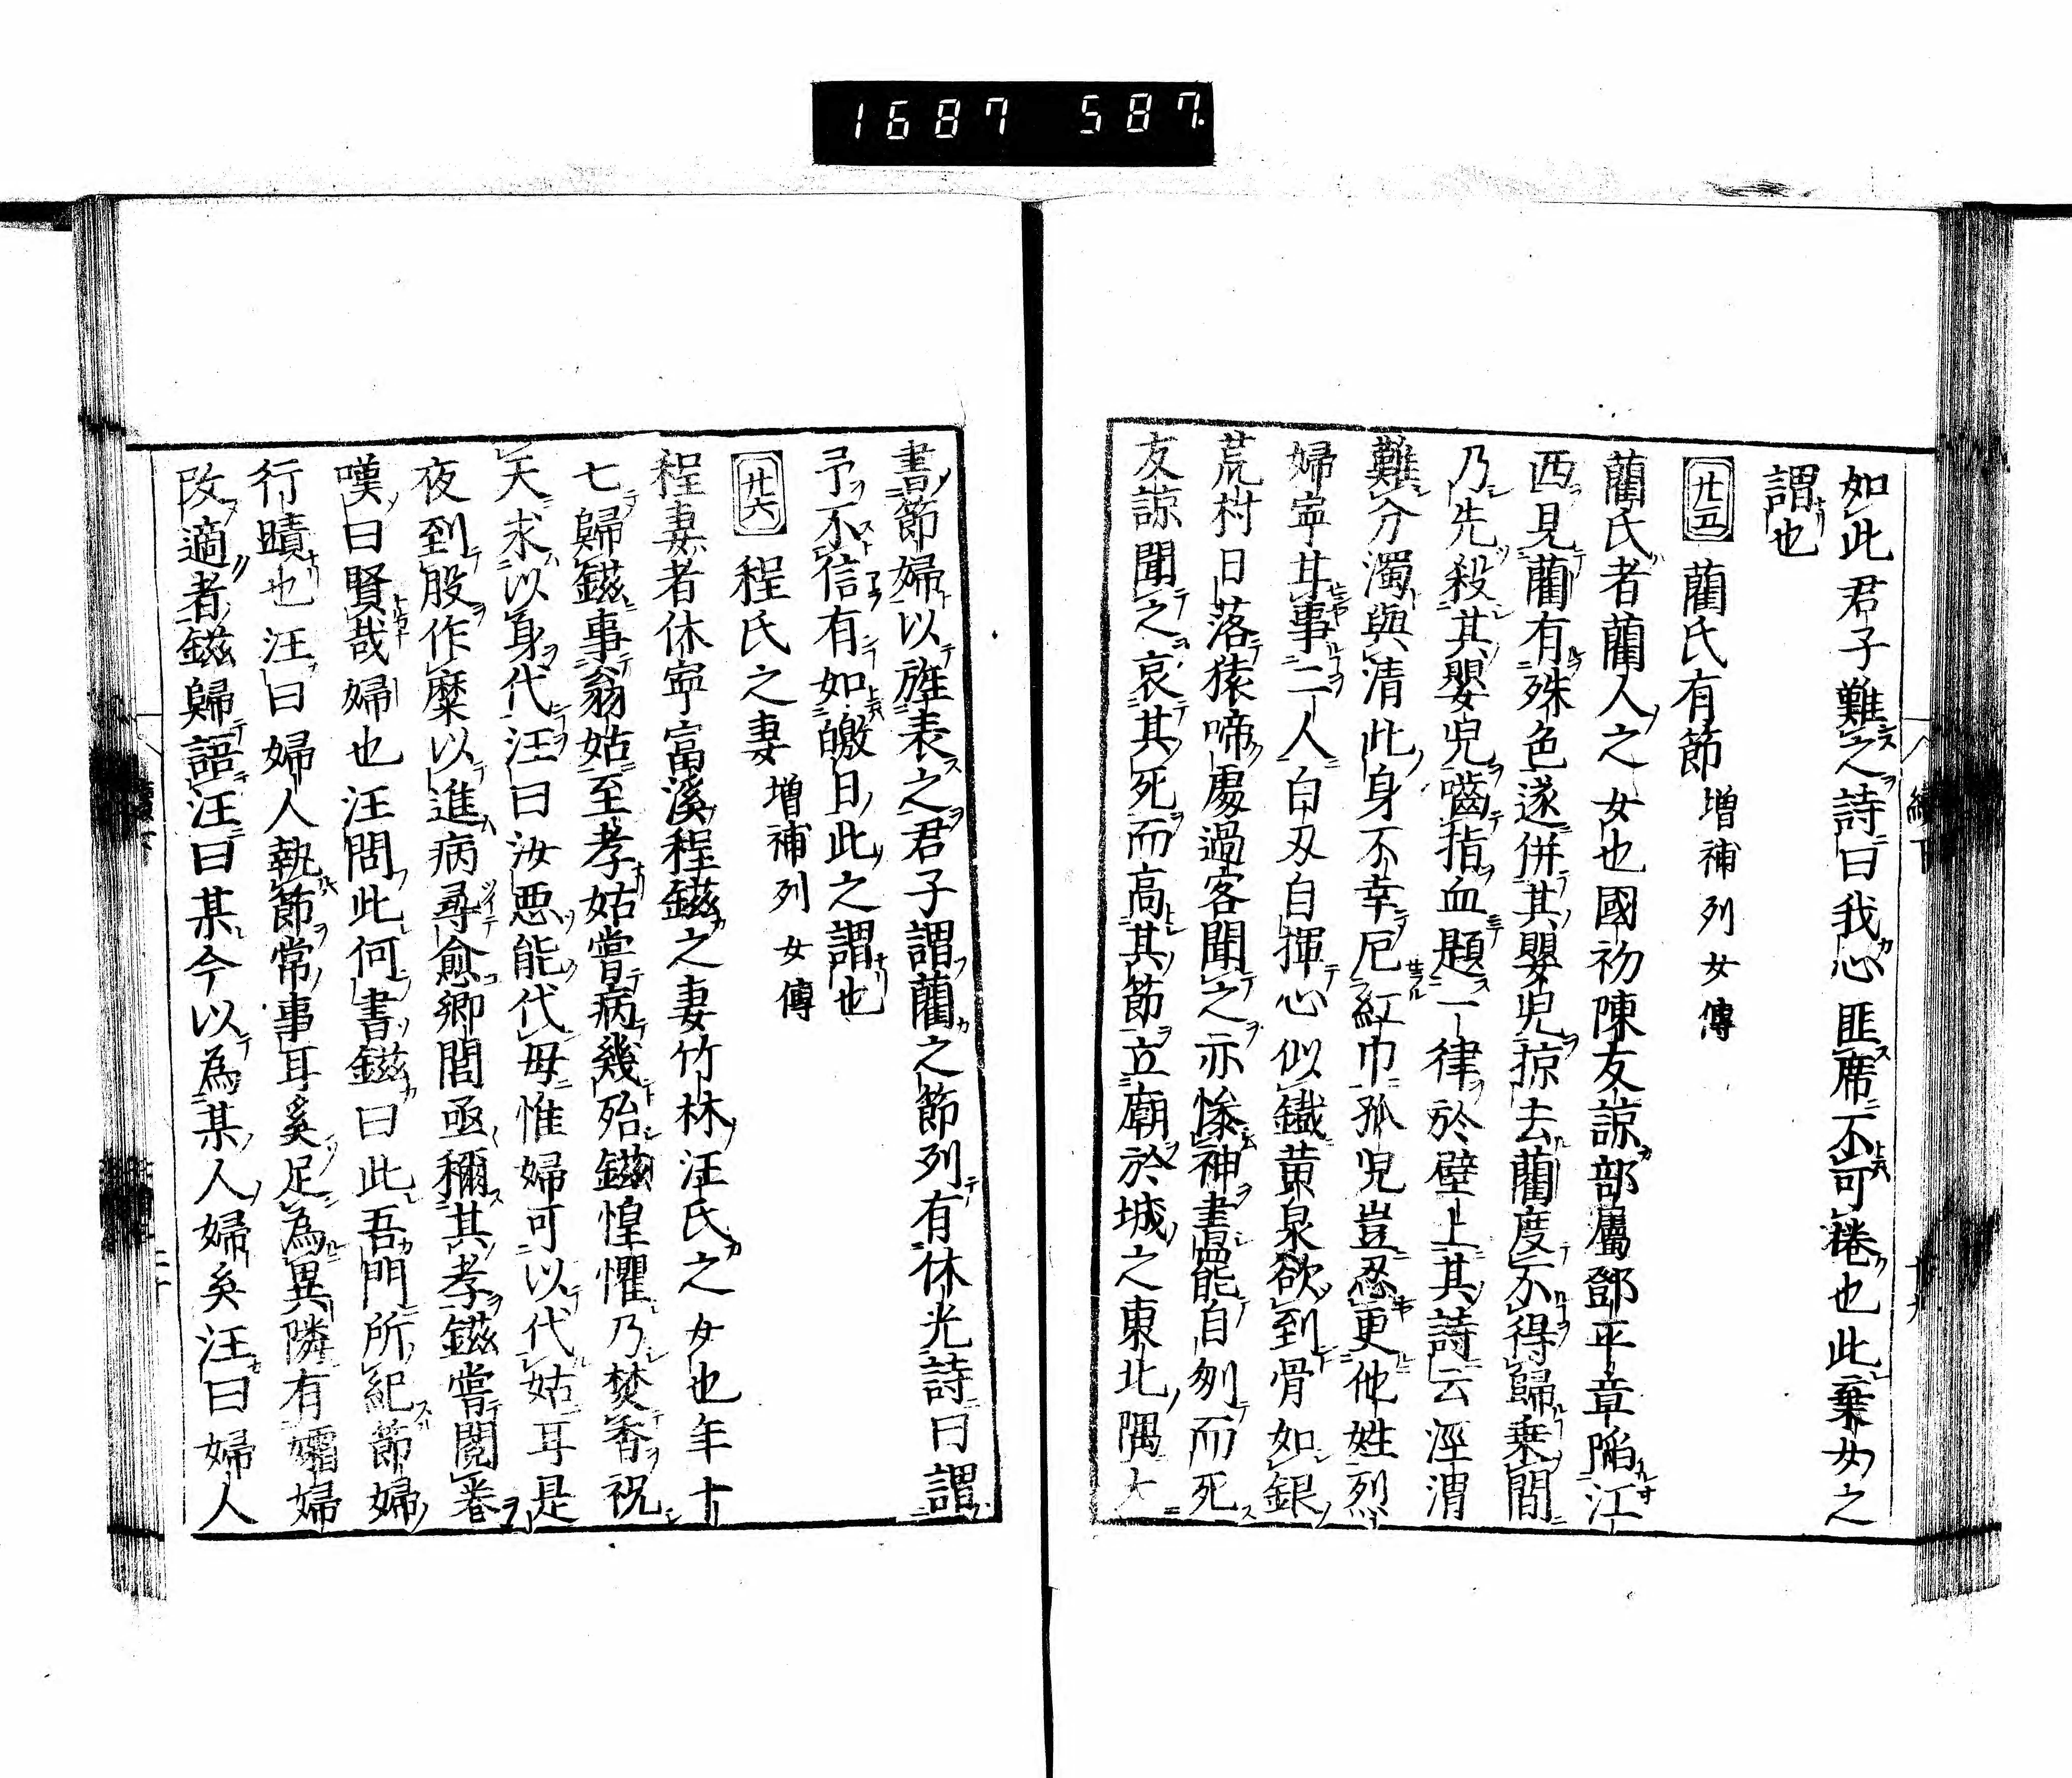 1687 587.
如此君子難之詩曰我心匪席不可捲也此棄女之
謂也
廿五 藺氏有節 増補列女傳
藺氏者藺人之女也國初陳友諒部屬鄧平章陥江
西見藺有殊色遂併其嬰兒掠去藺度不得歸乗間
乃先殺其嬰兒嚙指血題一律於壁上其詩云涇渭
難分濁與清此身不幸厄紅巾孤兒豈忍更他姓烈
婦寧甘事二人白刄自揮心似鐵黄泉欲到骨如銀
荒村日落猿啼處過客聞之亦惨神書罷自刎而死
友諒聞之哀其死而高其節立廟於城之東北隅大
書節婦以旌表之君子謂藺之節列有休光詩曰謂
予不信有如皦日此之謂也
廿六 程氏之妻 増補列女傳
程妻者休寧富溪程鎡之妻竹林汪氏之女也年十
七歸鎡事翁姑至孝姑嘗病幾殆鎡惶懼乃焚香祝
天求以身代汪曰汝悪能代母惟婦可以代姑耳是
夜到股作糜以進病尋愈郷閭亟稱其孝鎡嘗閲巻
嘆曰賢哉婦也汪問此何書鎡曰此吾門所紀節婦
行蹟也汪曰婦人執節常事耳奚足為異隣有孀婦
改適者鎡歸語汪曰某今以為某人婦矣汪曰婦人